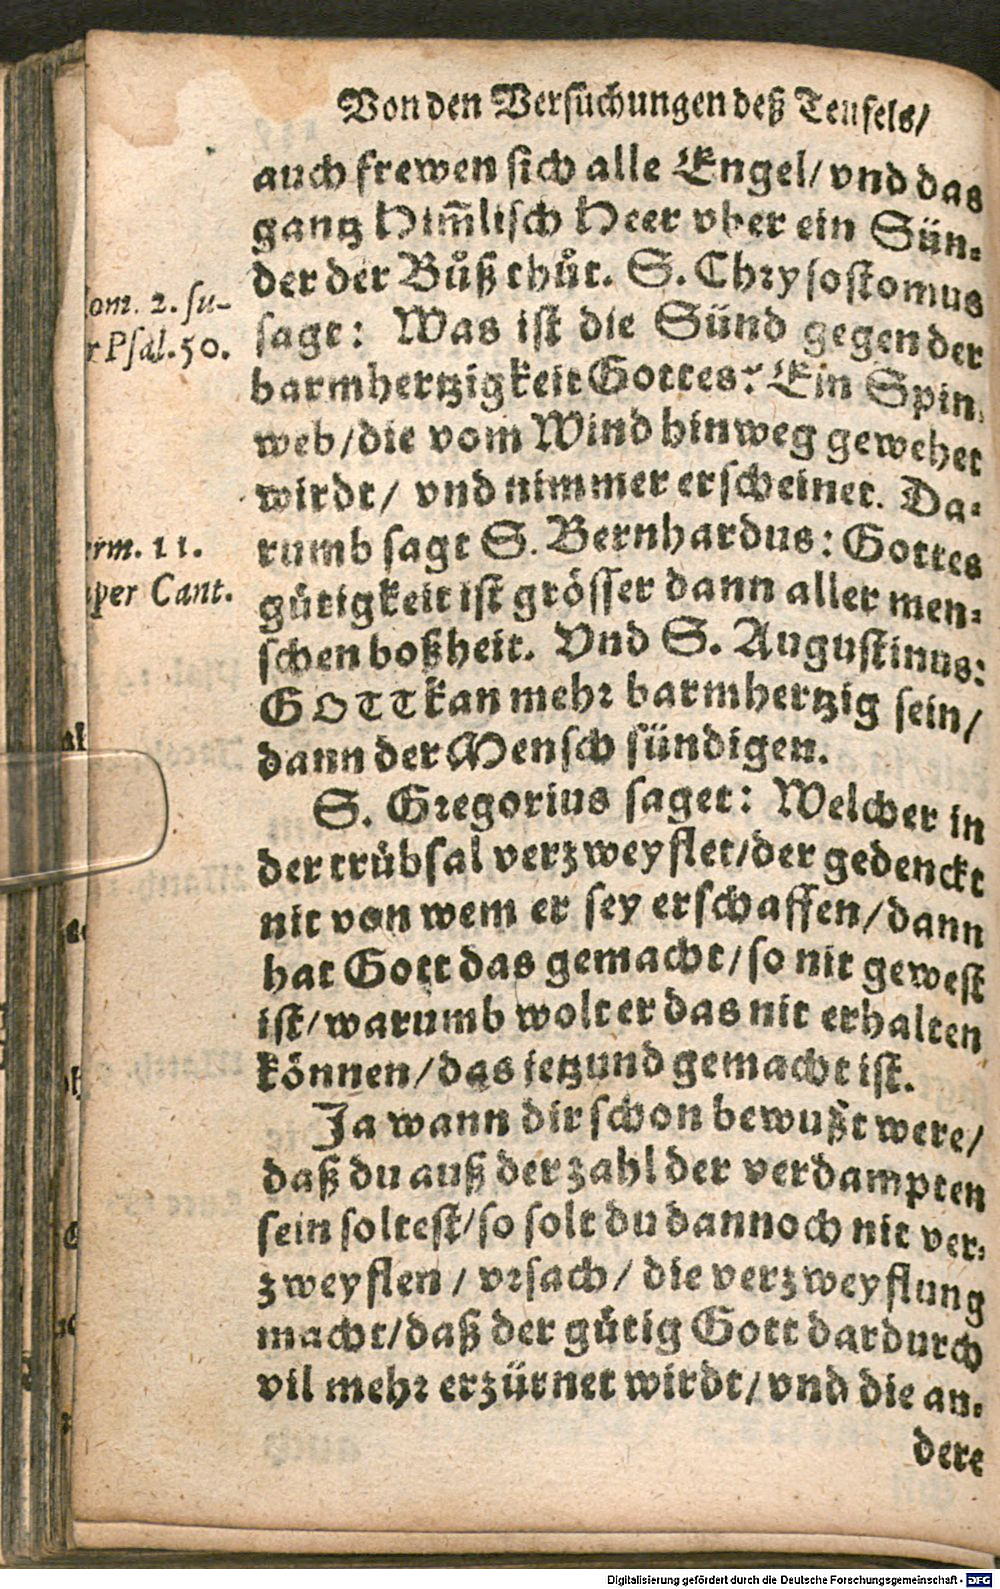 Von den Versůchungen deß Teufels/
auch frewen sich alle Engel/ vnd das
gantz Him̃lisch Heer vber ein Sün-
der der Bůß thůt. S. Chrysostomus
sagt: Was ist die Sünd gegen der
barmhertzigkeit Gottes? Ein Spin-
web/ die vom Wind hinweg gewehet
wirdt/ vnd nimmer erscheinet. Da-
rumb sagt S. Bernhardus: Gottes
gütigkeit ist grösser dann aller men-
schen boßheit. Vnd S. Augustinus:
GOTT kan mehr barmhertzig sein/
dann der Mensch sündigen.
S. Gregorius saget: Welcher in
der trübsal verzweyflet/ der gedenckt
nit von wem er sey erschaffen/ dann
hat Gott das gemacht/ so nit gewest
ist/ warumb wolt er das nit erhalten
können/ das jetzund gemacht ist.
Ja wann dir schon bewußt were/
daß du auß der zahl der verdampten
sein soltest/ so solt du dannoch nit ver-
zweyflen/ vrsach/ die verzweyflung
macht/ daß der gütig Gott dardurch
vil mehr erzürnet wirdt/ vnd die an-
dere
om. 2. su-
r Psal. 50.
rm. 11.
per Cant.
Digitalisierung gefördert durch die Deutsche Forschungsgemeinschaft - DFG